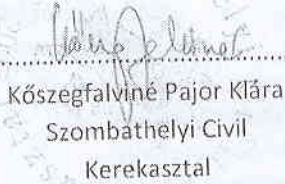 Kőszegfalviné Pajor Klára
Szombathelyi Civil
Kerekasztal